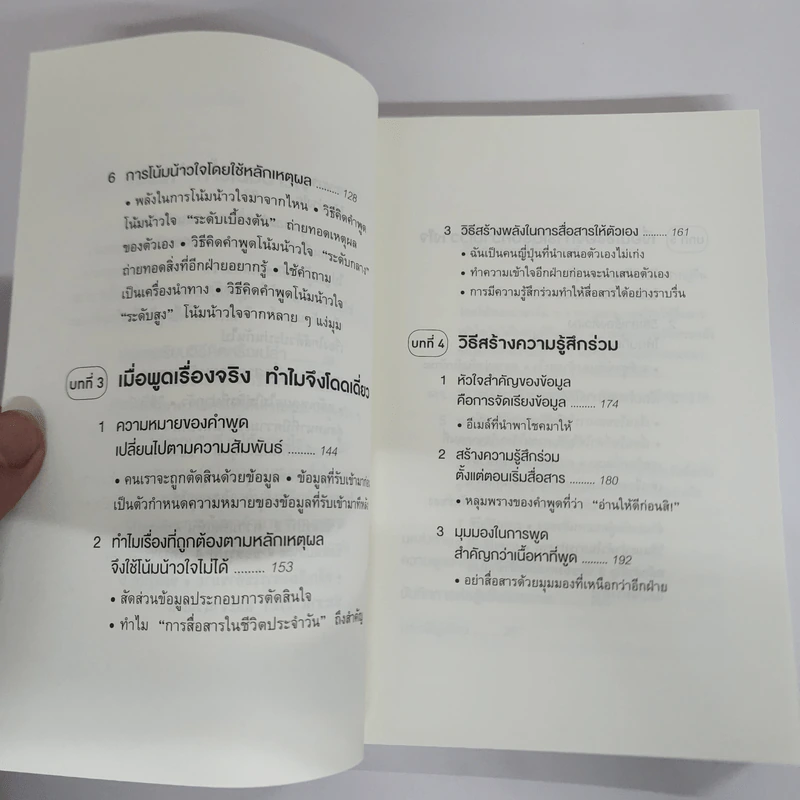 6 การโน้มน้าวใจโดยใช้หลักเหตุผล ......... 128
• พลังในการโน้มน้าวใจมาจากไหน • วิธีคิดคำพูด
โน้มน้าวใจ “ระดับเบื้องต้น” ถ่ายทอดเหตุผล
ของตัวเอง • วิธีคิดคำพูดโน้มน้าวใจ “ระดับกลาง”
ถ่ายทอดสิ่งที่อีกฝ่ายอยากรู้ • ใช้คำถาม
เป็นเครื่องนำทาง • วิธีคิดคำพูดโน้มน้าวใจ
“ระดับสูง” โน้มน้าวใจจากหลาย ๆ แง่มุม
บทที่ 3 เมื่อพูดเรื่องจริง ทำไมจึงโดดเดี่ยว
1 ความหมายของคำพูด
เปลี่ยนไปตามความสัมพันธ์ ......... 144
• คนเราจะถูกตัดสินด้วยข้อมูล • ข้อมูลที่รับเข้ามาก่อน
เป็นตัวกำหนดความหมายของข้อมูลที่รับเข้ามาทีหลัง
2 ทำไมเรื่องที่ถูกต้องตามหลักเหตุผล
จึงใช้โน้มน้าวใจไม่ได้ ......... 153
• สัดส่วนข้อมูลประกอบการตัดสินใจ
• ทำไม “การสื่อสารในชีวิตประจำวัน” ถึงสำคัญ
3 วิธีสร้างพลังในการสื่อสารให้ตัวเอง ......... 161
• ฉันเป็นคนญี่ปุ่นที่นำเสนอตัวเองไม่เก่ง
• ทำความเข้าใจอีกฝ่ายก่อนจะนำเสนอตัวเอง
• การมีความรู้สึกร่วมทำให้สื่อสารได้อย่างราบรื่น
บทที่ 4 วิธีสร้างความรู้สึกร่วม
1 หัวใจสำคัญของข้อมูล
คือการจัดเรียงข้อมูล ......... 174
• อีเมล์ที่นำพาโชคมาให้
2 สร้างความรู้สึกร่วม
ตั้งแต่ตอนเริ่มสื่อสาร ......... 180
• หลุมพรางของคำพูดที่ว่า “อ่านให้ดีก่อนสิ!”
3 มุมมองในการพูด
สำคัญกว่าเนื้อหาที่พูด ......... 192
• อย่าสื่อสารด้วยมุมมองที่เหนือกว่าอีกฝ่าย